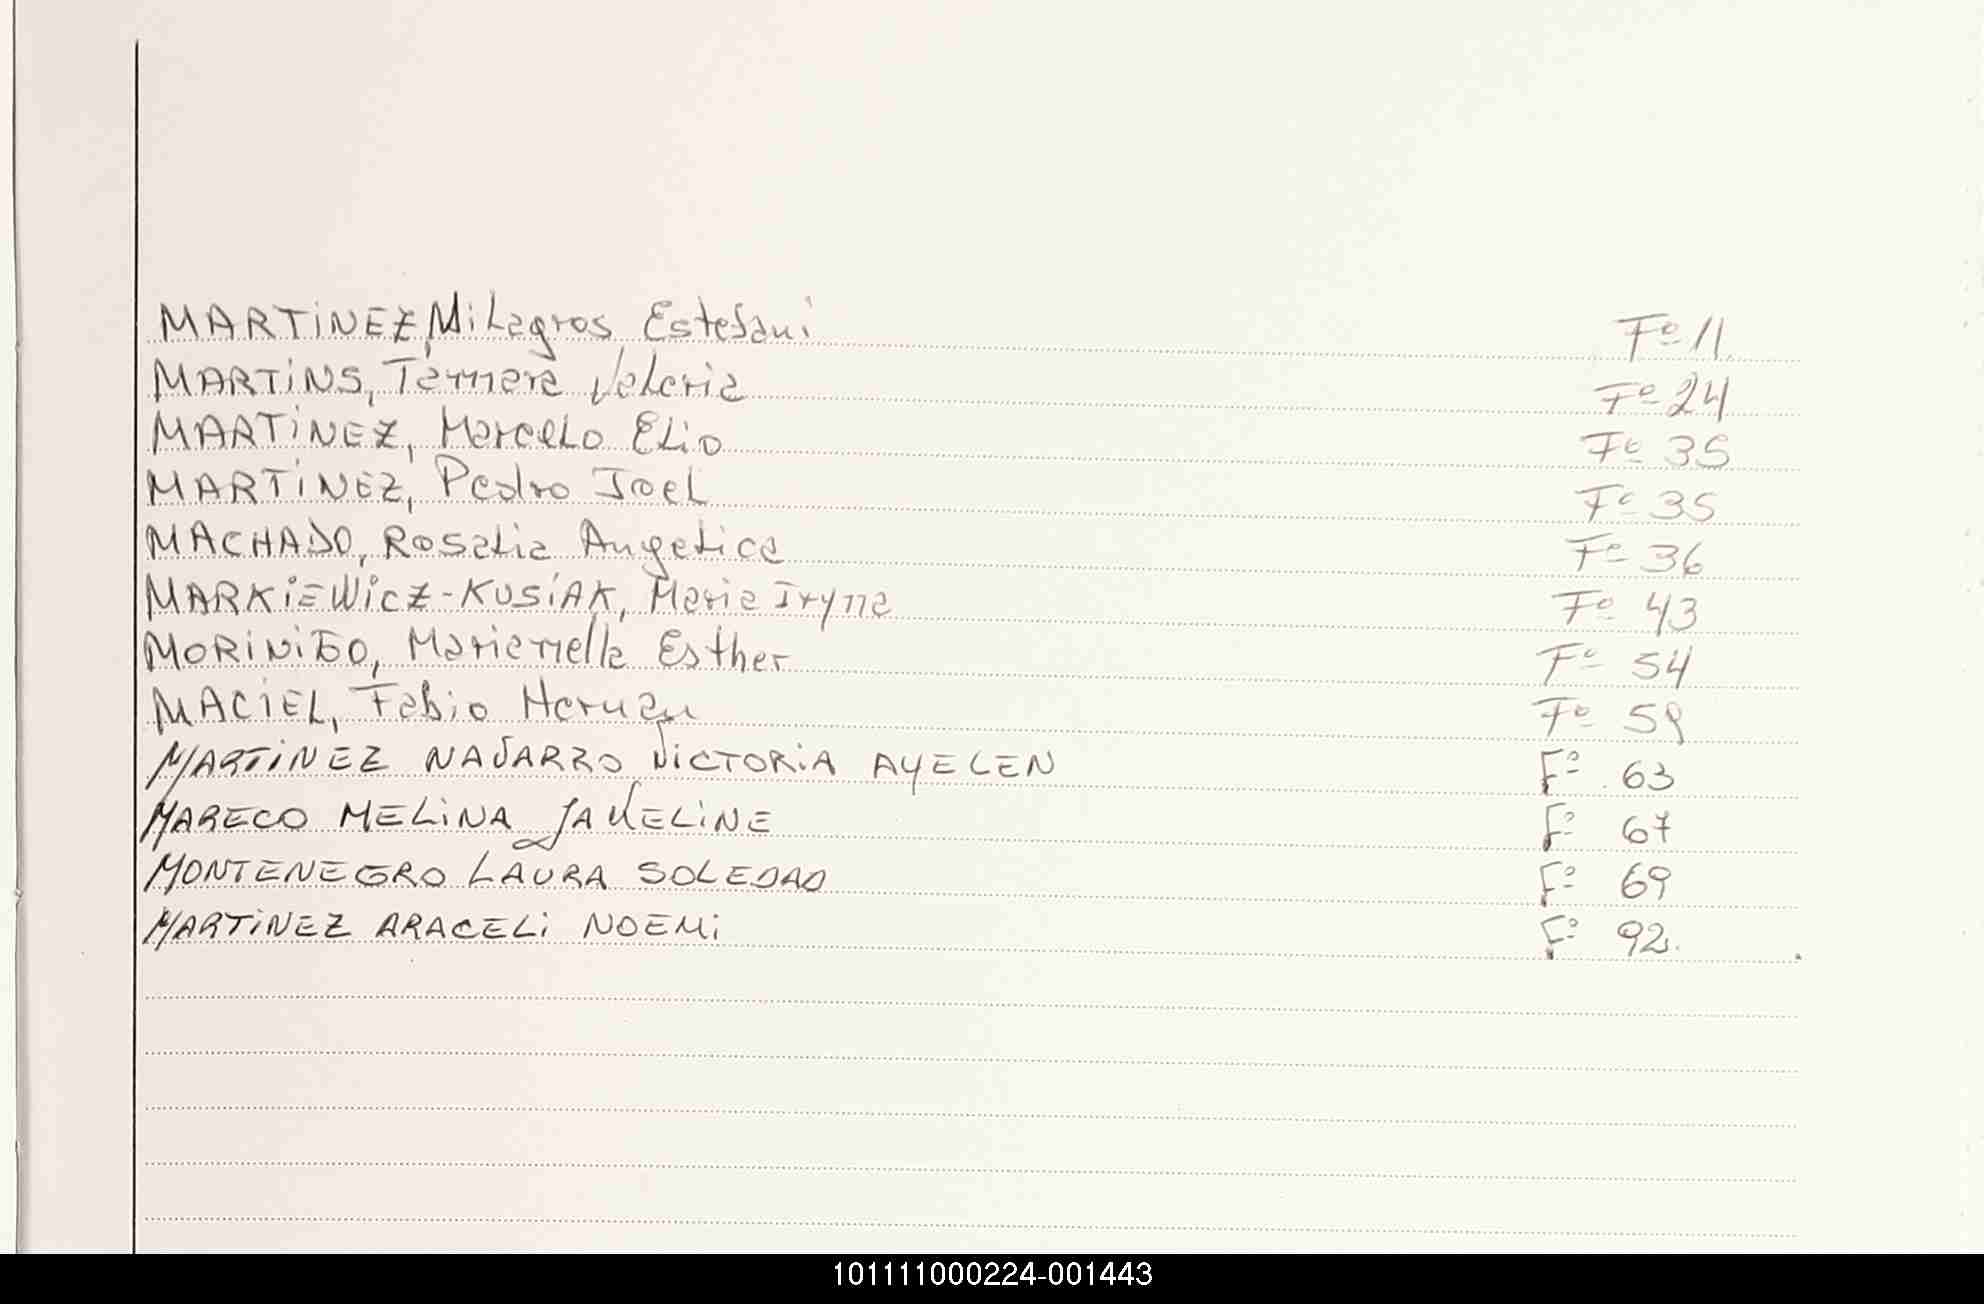 MARTINEZ, Milagros Estefani Fº 11
MARTINS, Tamara Valeria Fº 24
MARTINEZ, Marcelo Elio Fº 35
MARTINEZ, Pedro Joel Fº 35
MACHADO, Rosalia Angelica Fº 36
MARKIEWICZ-KUSIAK, Maria Iryna Fº 43
MORINIGO, Marianella Esther Fº 54
MACIEL, Fabio Hernan Fº 59
MARTINEZ NAVARRO VICTORIA AYELEN Fº 63
MARECO MELINA JAKELINE Fº 67
MONTENEGRO LAURA SOLEDAD Fº 69
MARTINEZ ARACELI NOEMI Fº 92.
101111000224-001443